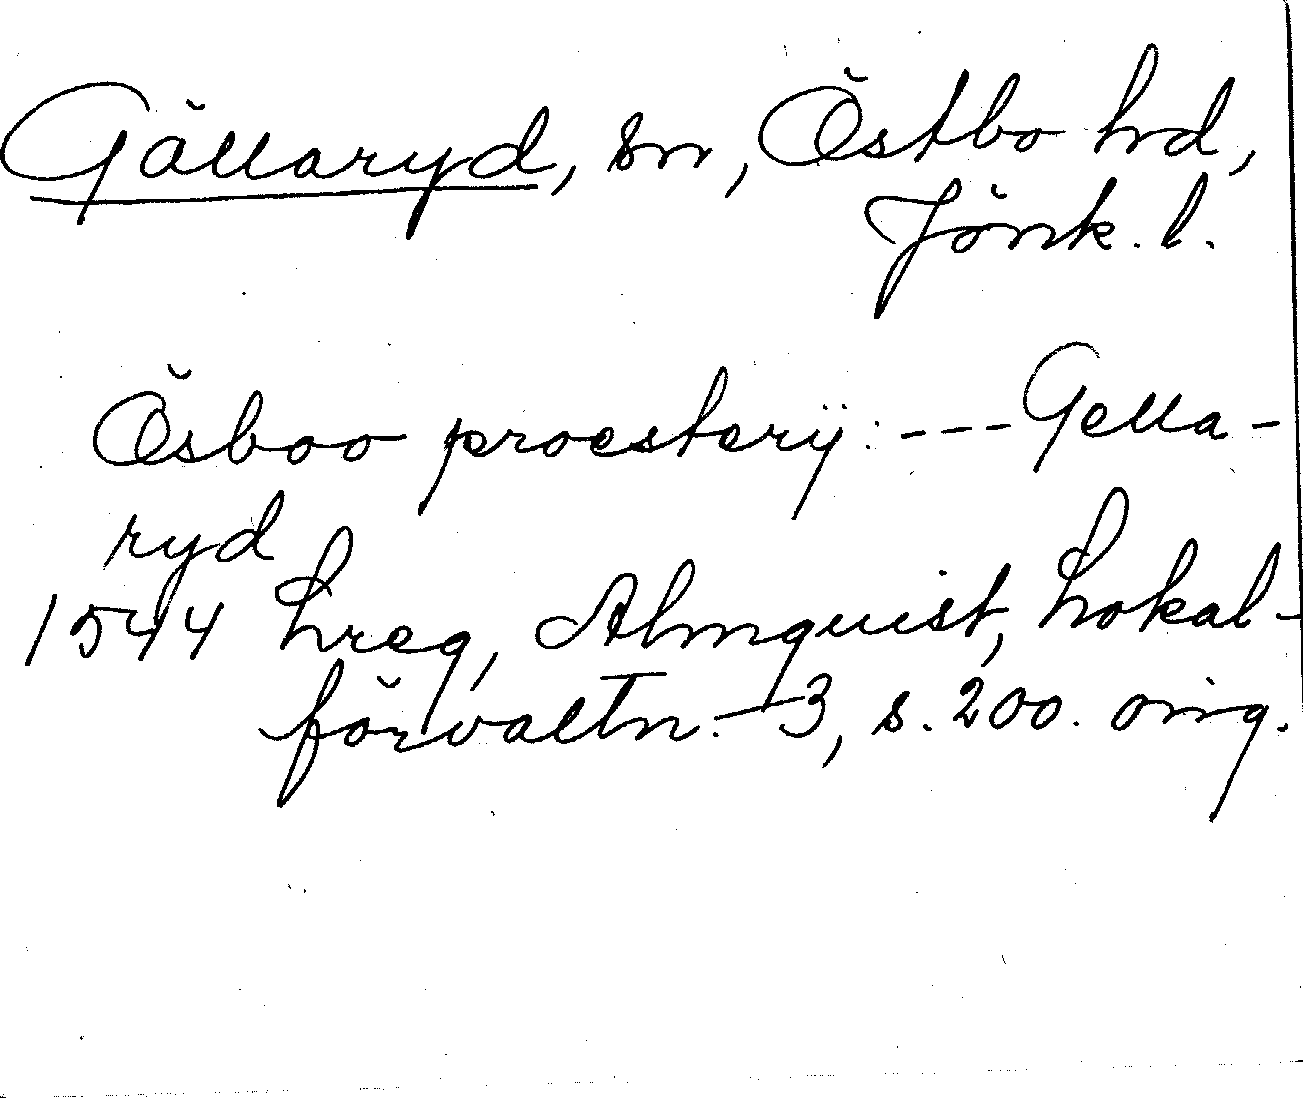 Gällaryd, sn, Östbo hd,
Jönk. l.
Ösboo proestery̋: --- Gella-
ryd
1544 hreg, Almquist, Lokal-
förvaltn. 3, s. 200. orig.